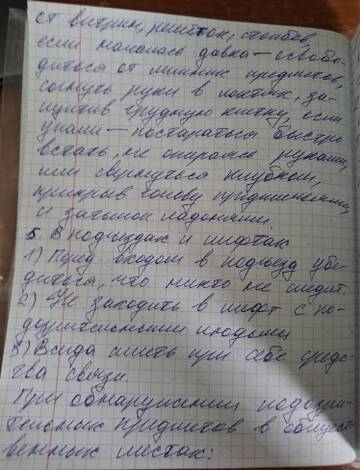 от витрин, решёток, столбов,
если началась давка – освобо-
диться от лишних предметов,
согнуть руки в локтях, за-
щитив грудную клетку, если
упали – постараться быстро
встать, не опираясь руками,
или свернуться клубком,
прикрыв голову предплечьями,
а затылок ладонями.
5. В подъездах и лифтах
1) Перед входом в подъезд убе-
диться, что никто не следит.
2) Не заходить в лифт с по-
дозрительными людьми
3) Всегда иметь при себе средс-
тва связи.
При обнаружении подозри-
тельных предметов в общест-
венных местах: